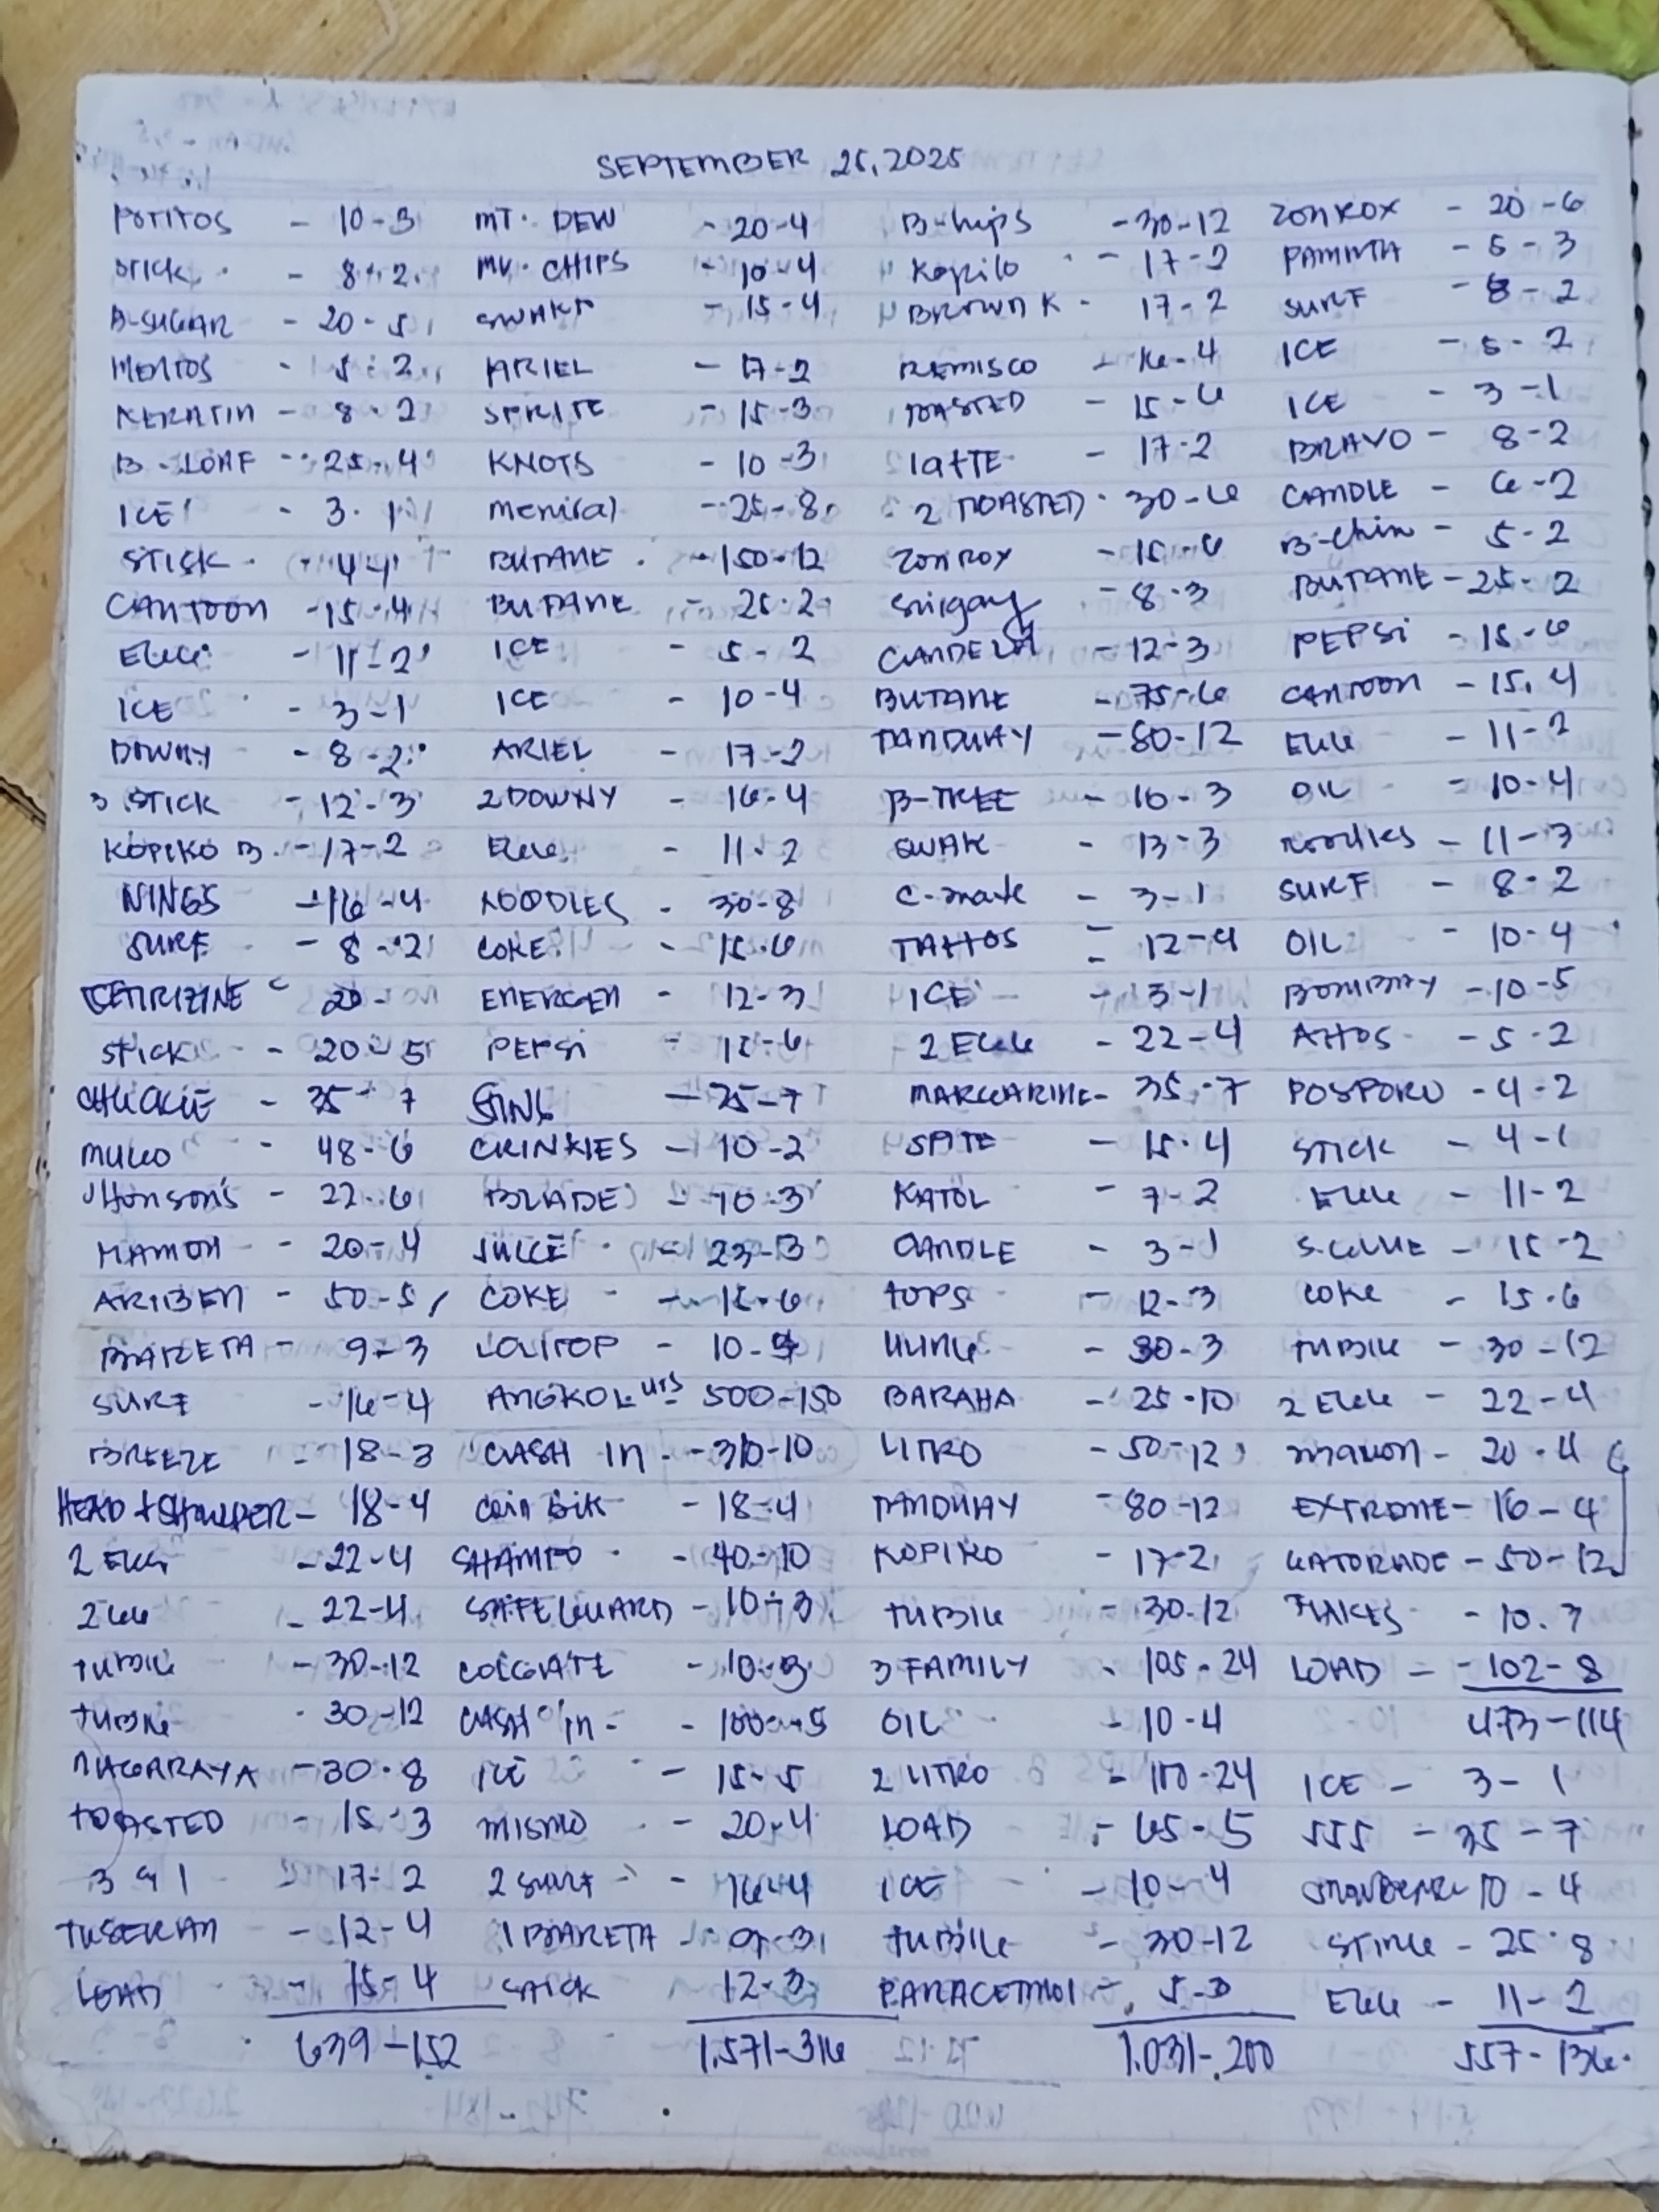 SEPTEMBER 25, 2025
POTITOS - 10-3
STICK - 8-2
B-SUGAR - 20-5
MENTOS - 5-2
KERATIN - 8-2
B-LOAF - 25-4
ICE - 3-1
STICK - 4-1
CANTOON - 15-4
EGG - 11-2
ICE - 3-1
DOWNY - 8-2
3 STICK - 12-3
KOPIKO B. - 17-2
NINGS - 16-4
SURF - 8-2
CETIRIZINE - 20-
STICK - 20-5
CHUCKIE - 35-7
48-6
JHONSON'S - 22-6
MAMON - 20-4
50-5
BARETA - 9-3
SURF - 16-4
BREEZE - 18-3
HEAD & SHOULDER - 18-4
2 EGG - 22-4
2 GG - 22-4
TUBIG - 30-12
TUBIG - 30-12
NAGARAYA - 30-8
TOASTED - 15-3
3 n 1 - 17-2
12-4
LOAD - 15-4
639-152
MT. DEW - 20-4
MV. CHIPS - 10-4
15-4
ARIEL - 17-2
SPRITE - 15-3
KNOTS - 10-3
25-8
BUTANE - 150-12
BUTANE - 25-2
ICE - 5-2
ICE - 10-4
ARIEL - 17-2
2 DOWNY - 16-4
EGG - 11-2
NOODLES - 30-8
COKE - 15-6
ENERGEN - 12-3
PEPSI - 15-6
STING - 25-7
CRINKLES - 10-2
BLADE - 10-3
JUICE - 23-3
COKE - 15-6
LOLIPOP - 10-
ANGKOL - 500-150
CASH IN - 310-10
18-4
SHAMPO - 40-10
SAFEGUARD - 10-3
COLGATE - 10-3
CASH IN - 100-5
ICE - 15-5
MISMO - 20-4
2 SURF - 16-4
1 BARETA - 9-3
STICK 12-3
1,571-316
30-12
17-2
BROWN K - 17-2
REMISCO - 16-4
TOASTED - 15-6
LATTE - 17-2
2 TOASTED - 30-6
ZONROX - 15-6
8-3
CANDELA - 12-3
BUTANE - 75-6
TANDUAY - 80-12
B-TREE - 10-3
SWAK - 13-3
C-mate - 3-1
TATTOS - 12-4
ICE - 3-1
2 EGG - 22-4
MARGARINE - 35-7
SPITE - 15-4
KATOL - 7-2
CANDLE - 3-1
TOPS - 12-3
30-3
BARAHA - 25-10
LITRO - 50-12
TANDUAY - 80-12
KOPIKO - 17-2
TUBIG - 30-12
3 FAMILY - 105-24
OIL - 10-4
2 LITRO - 100-24
LOAD - 65-5
ICE - 10-4
TUBIG - 30-12
PARACETMOL - 5-3
1,031-200
ZONROX - 20-6
PAMINTA - 5-3
SURF - 8-2
ICE - 5-2
ICE - 3-1
BRAVO - 8-2
CANDLE - 6-2
5-2
BUTANE - 25-2
PEPSI - 15-6
CANTOON - 15-4
EGG - 11-2
OIL - 10-4
noodles - 11-3
SURF - 8-2
OIL - 10-4
BOMBAY - 10-5
ATTOS - 5-2
POSPORO - 4-2
STICK - 4-1
EGG - 11-2
15-2
COKE - 15-6
TUBIG - 30-12
2 EGG - 22-4
MAMON - 20-4
EXTREME - 16-4
GATORADE - 50-12
FLAKES - 10-3
LOAD - 102-8
473-114
ICE - 3-1
555 - 35-7
10-4
STING - 25-8
EGG - 11-2
557-136